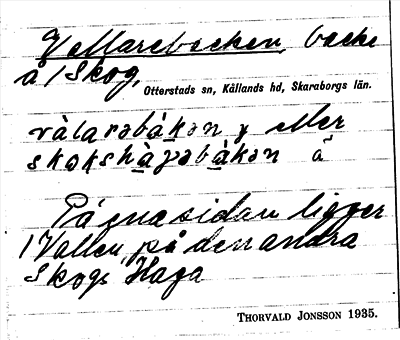 Vallarebacken, backe
å / Skog,
Otterstads sn, Kållands hd, Skaraborgs län.
vàlarəbákən y eller
skokshàgəbàkən ä
På ena sidan ligger
/ Vallen, på den andra
Skogs Haga
THORVALD JONSSON 1935.